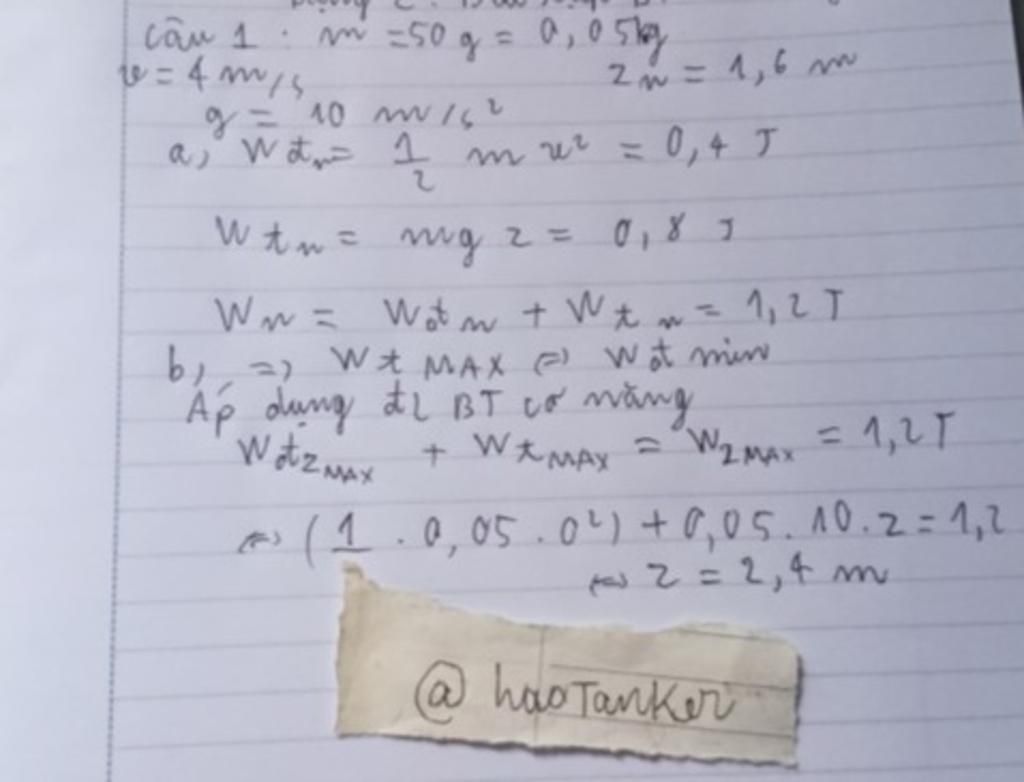 câu 1 : m = 50 g = 0,05kg
v = 4 m/s z n = 1,6 m
g = 10 m/s²
a, Wđn = 1/2 m v² = 0,4 J
Wtn = mg z = 0,8 J
Wn = Wđn + Wtn = 1,2 J
b, => Wt MAX <=> Wđ min
Áp dụng đL BT cơ năng
WđzMAX + WtMAX = WzMAX = 1,2 J
<=> (1 . 0,05 . 0²) + 0,05 . 10 . z = 1,2
<=> z = 2,4 m
@ haoTanKer